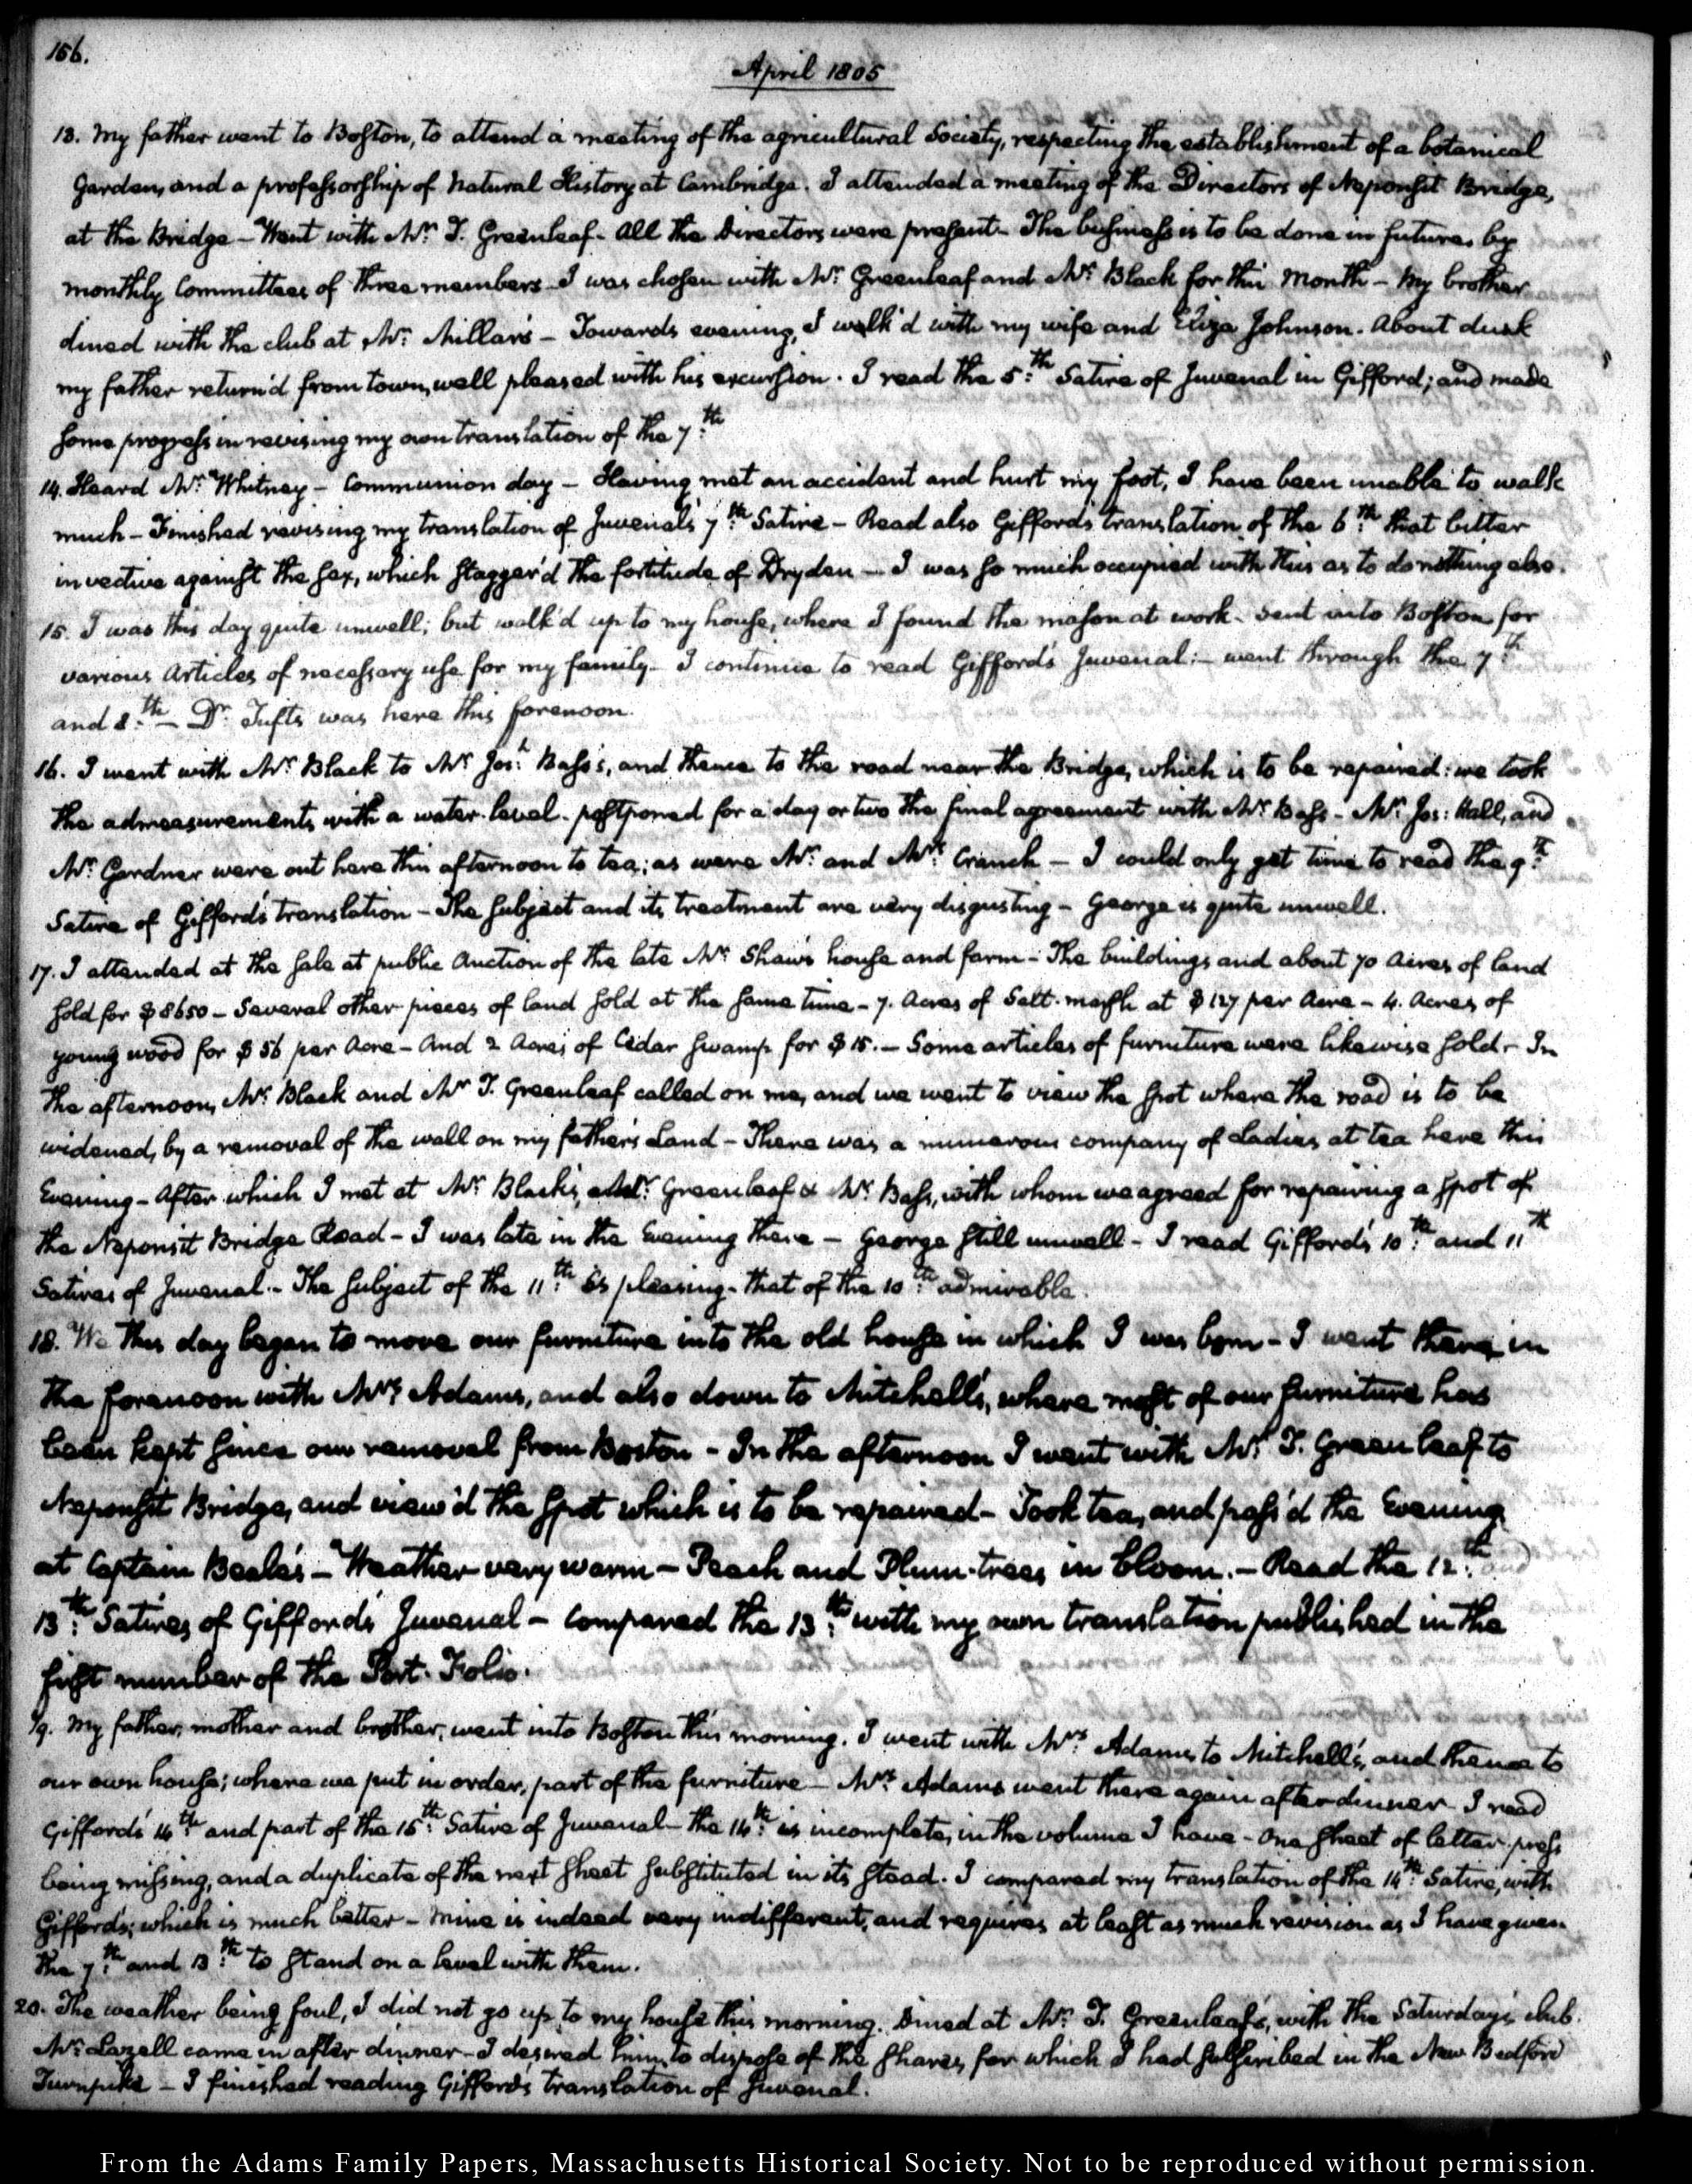 156.
April 1805
13. My father went to Boston, to attend a meeting of the agricultural Society, respecting the establishment of a botanical
Garden, and a professorship of Natural History at Cambridge. I attended a meeting of the Directors of Neponsit Bridge,
at the Bridge — Went with Mr. T. Greenleaf. All the Directors were present. The business is to be done in future, by
monthly Committees of three members. I was chosen with Mr. Greenleaf and Mr. Black for this month — My brother
dined with the club at Mr. Millar's — Towards evening, I walk'd with my wife and Eliza Johnson. About dusk
my father return'd from town, well pleased with his excursion. I read the 5.th Satire of Juvenal in Gifford; and made
some progress in revising my own translation of the 7.th
14. Heard Mr. Whitney — Communion day — Having met an accident and hurt my foot, I have been unable to walk
much — Finished revising my translation of Juvenal's 7.th Satire — Read also Gifford's translation of the 6.th that bitter
invective against the sex, which stagger'd the fortitude of Dryden — I was so much occupied with this as to do nothing else.
15. I was this day quite unwell; but walk'd up to my house, where I found the mason at work. Sent into Boston for
various Articles of necessary use for my family — I continue to read Gifford's Juvenal: — went through the 7.th
and 8.th — Dr. Tufts was here this forenoon.
16. I went with Mr. Black to Mr. Jos.h Bass's, and thence to the road near the Bridge, which is to be repaired: we took
the admeasurements with a water-level. postponed for a day or two the final agreement with Mr. Bass — Mr. Jos: Hall, and
Mr. Gardner were out here this afternoon to tea; as were Mr. and Mrs. Cranch — I could only get time to read the 9.th
Satire of Gifford's translation — The subject and its treatment are very disgusting — George is quite unwell.
17. I attended at the sale at public Auction of the late Mr. Shaw's house and farm — The buildings and about 70 Acres of land
sold for $8650 — Several other pieces of land sold at the same time — 7. Acres of Salt-marsh at $127 per Acre — 4. Acres of
young wood for $56 per Acre — And 2 Acres of Cedar swamp for $15. — Some articles of furniture were likewise sold — In
the afternoon, Mr. Black and Mr. T. Greenleaf called on me, and we went to view the spot where the road is to be
widened, by a removal of the wall on my father's Land — There was a numerous company of Ladies at tea here this
Evening — After which I met at Mr. Black's, Mr. Greenleaf & Mr. Bass, with whom we agreed for repairing a spot of
the Neponsit Bridge Road — I was late in the Evening there — George still unwell — I read Gifford's 10.th and 11th
Satires of Juvenal. — The subject of the 11.th is pleasing — that of the 10.th admirable.
18. We this day began to move our furniture into the old house in which I was born — I went there in
the forenoon with Mrs. Adams, and also down to Mitchell's, where most of our furniture has
been kept since our removal from Boston — In the afternoon I went with Mr. T. Greenleaf to
Neponsit Bridge, and view'd the spot which is to be repaired — Took tea, and pass'd the Evening
at Captain Beale's — Weather very warm — Peach and Plum-trees in bloom. — Read the 12.th and
13.th Satires of Gifford's Juvenal — Compared the 13.th with my own translation published in the
first number of the Port-Folio.
19. My father, mother and brother, went into Boston this morning. I went with Mrs. Adams to Mitchell's, and thence to
our own house; where we put in order, part of the furniture — Mrs. Adams went there again after dinner. I read
Gifford's 14th and part of the 15.th Satire of Juvenal — the 14.th is incomplete, in the volume I have — One sheet of letter-press
being missing, and a duplicate of the next sheet substituted in its stead. I compared my translation of the 14.th Satire, with
Gifford's; which is much better — Mine is indeed very indifferent, and requires at least as much revision as I have given
the 7.th and 13.th to stand on a level with them.
20. The weather being foul, I did not go up to my house this morning. Dined at Mr. T. Greenleaf's, with the Saturday's club.
Mr. Lazell came in after dinner — I desired him to dispose of the shares, for which I had subscribed in the New Bedford
Turnpike — I finished reading Gifford's translation of Juvenal.
From the Adams Family Papers, Massachusetts Historical Society. Not to be reproduced without permission.